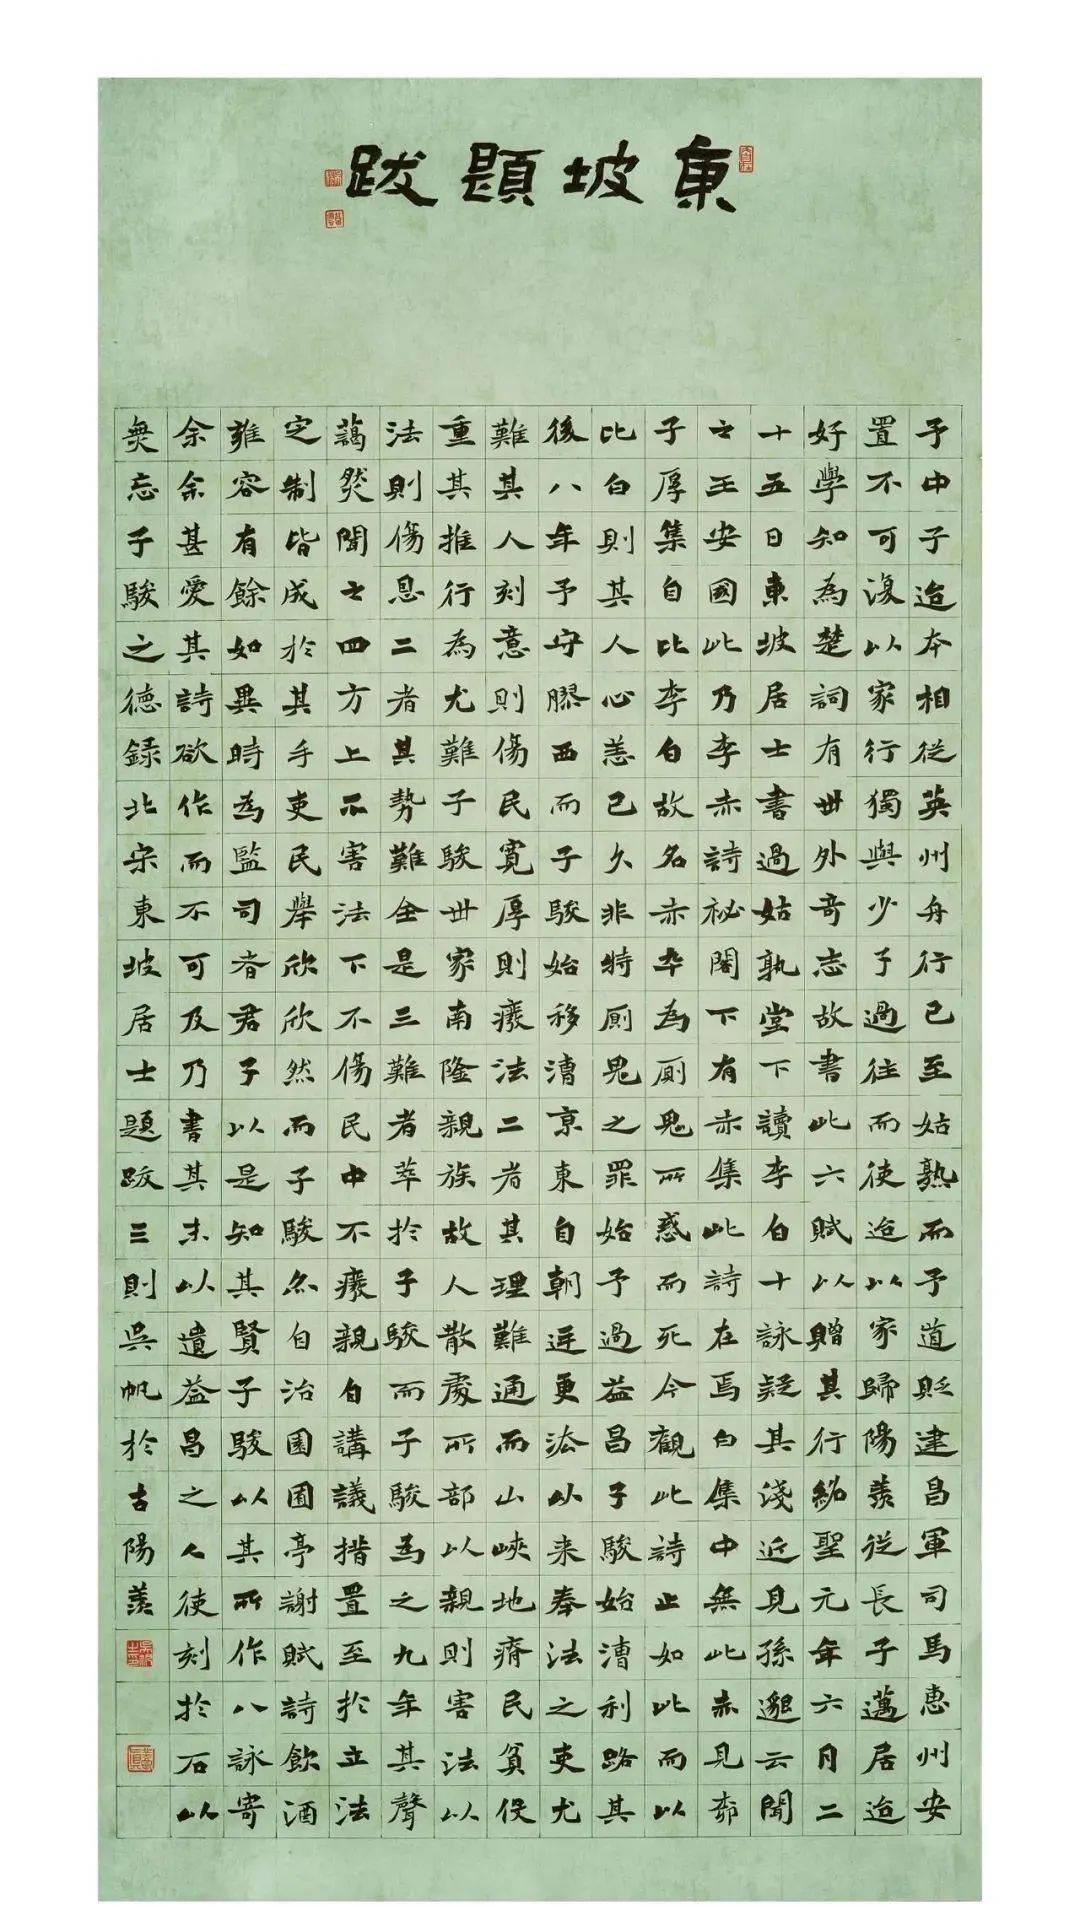 東坡題跋
予中子迨本相從英州舟行已至姑熟而予道貶建昌軍司馬惠州安
置不可復以家行獨與少子過往而使迨以家歸陽羨從長子邁居迨
好學知為楚詞有世外奇志故書此六賦以贈其行紹聖元年六月二
十五日東坡居士書過姑孰堂下讀李白十詠疑其淺近見孫邈云聞
之王安國此乃李赤詩秘閣下有赤集此詩在焉白集中無此赤見柳
子厚集自比李白故名赤卒為厠鬼所惑而死今觀此詩止如此而以
比白則其人心恙已久非特厠鬼之罪始予過益昌子駿始漕利路其
後八年予守膠西而子駿始移漕京東自朝廷更法以来奉法之吏尤
難其人刻意則傷民寬厚則癈法二者其理難通而山峽地瘠民貧役
重其推行為尤難子駿世家南隆親族故人散處所部以親則害法以
法則傷恩二者其勢難全是三難者萃於子駿而子駿為之九年其聲
藹然聞之四方上不害法下不傷民中不癈親自講議措置至於立法
定制皆成於其手吏民舉欣欣然而子駿亦自治園囿亭謝賦詩飲酒
雍容有餘如異時為監司者君子以是知其賢子駿以其所作八詠寄
余余甚愛其詩欲作而不可及乃書其末以遺益昌之人使刻於石以
無忘子駿之德錄北宋東坡居士題跋三則吳帆於古陽羨